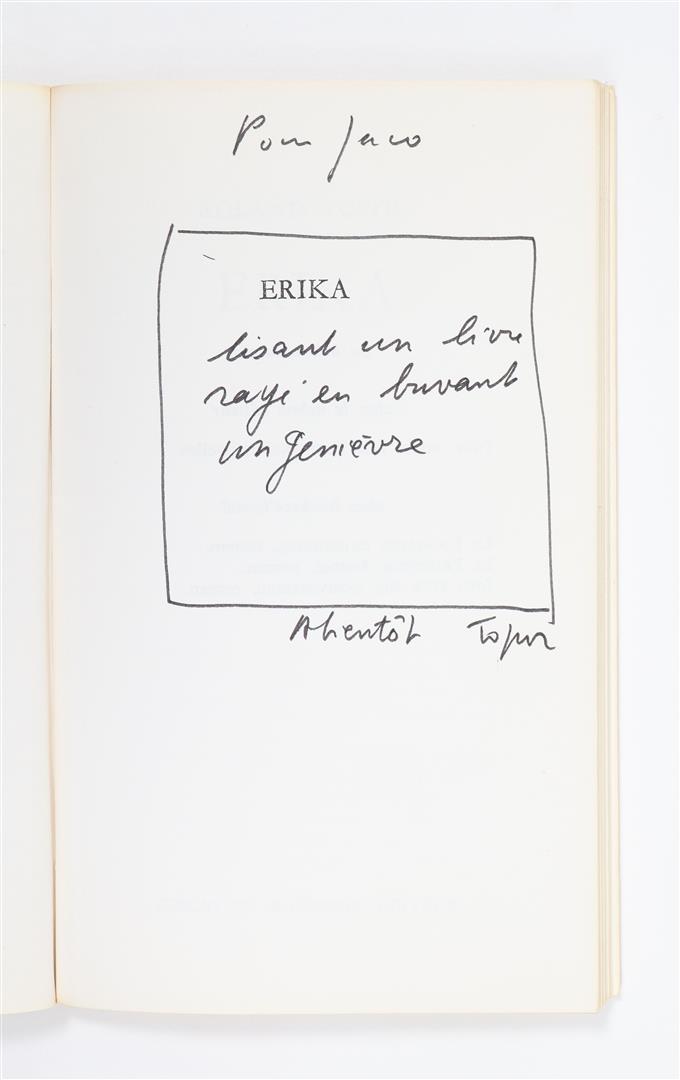 Pour Jaco
ERIKA
lisant un livre
rayé en buvant
un genièvre
A bientôt Topor